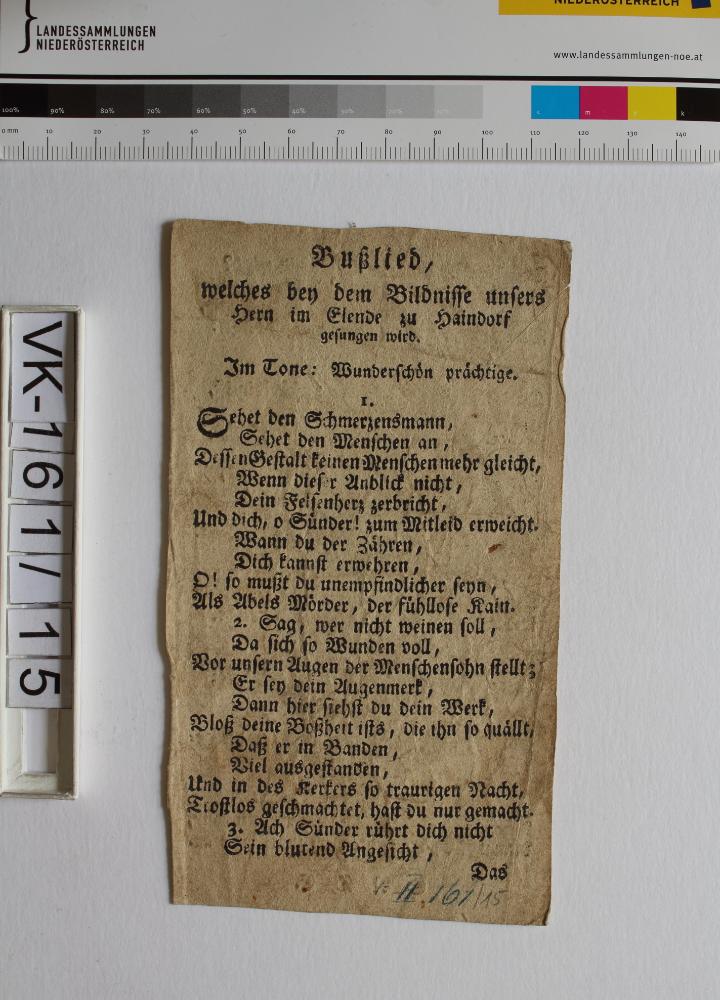 LANDESSAMMLUNGEN
NIEDERÖSTERREICH
NIEDERÖSTERREICH
www.landessammlungen-noe.at
100% 90% 80% 70% 60% 50% 40% 30% 20% 10% c m y k
0 mm 10 20 30 40 50 60 70 80 90 100 110 120 130 140
VK-161/15
Bußlied,
welches bey dem Bildnisse unsers
Hern im Elende zu Haindorf
gesungen wird.
Im Tone: Wunderschön prächtige.
1.
Sehet den Schmerzensmann,
Sehet den Menschen an,
Dessen Gestalt keinen Menschen mehr gleicht,
Wenn dieser Anblick nicht,
Dein Felsenherz zerbricht,
Und dich, o Sünder! zum Mitleid erweicht.
Wann du der Zähren,
Dich kannst erwehren,
O! so mußt du unempfindlicher seyn,
Als Abels Mörder, der fühllose Kain.
2. Sag, wer nicht weinen soll,
Da sich so Wunden voll,
Vor unsern Augen der Menschensohn stellt;
Er sey dein Augenmerk,
Dann hier siehst du dein Werk,
Bloß deine Boßheit ists, die ihn so quällt,
Daß er in Banden,
Viel ausgestanden,
Und in des Kerkers so traurigen Nacht,
Trostlos geschmachtet, hast du nur gemacht.
3. Ach Sünder rührt dich nicht
Sein blutend Angesicht,
Das
II 161/15